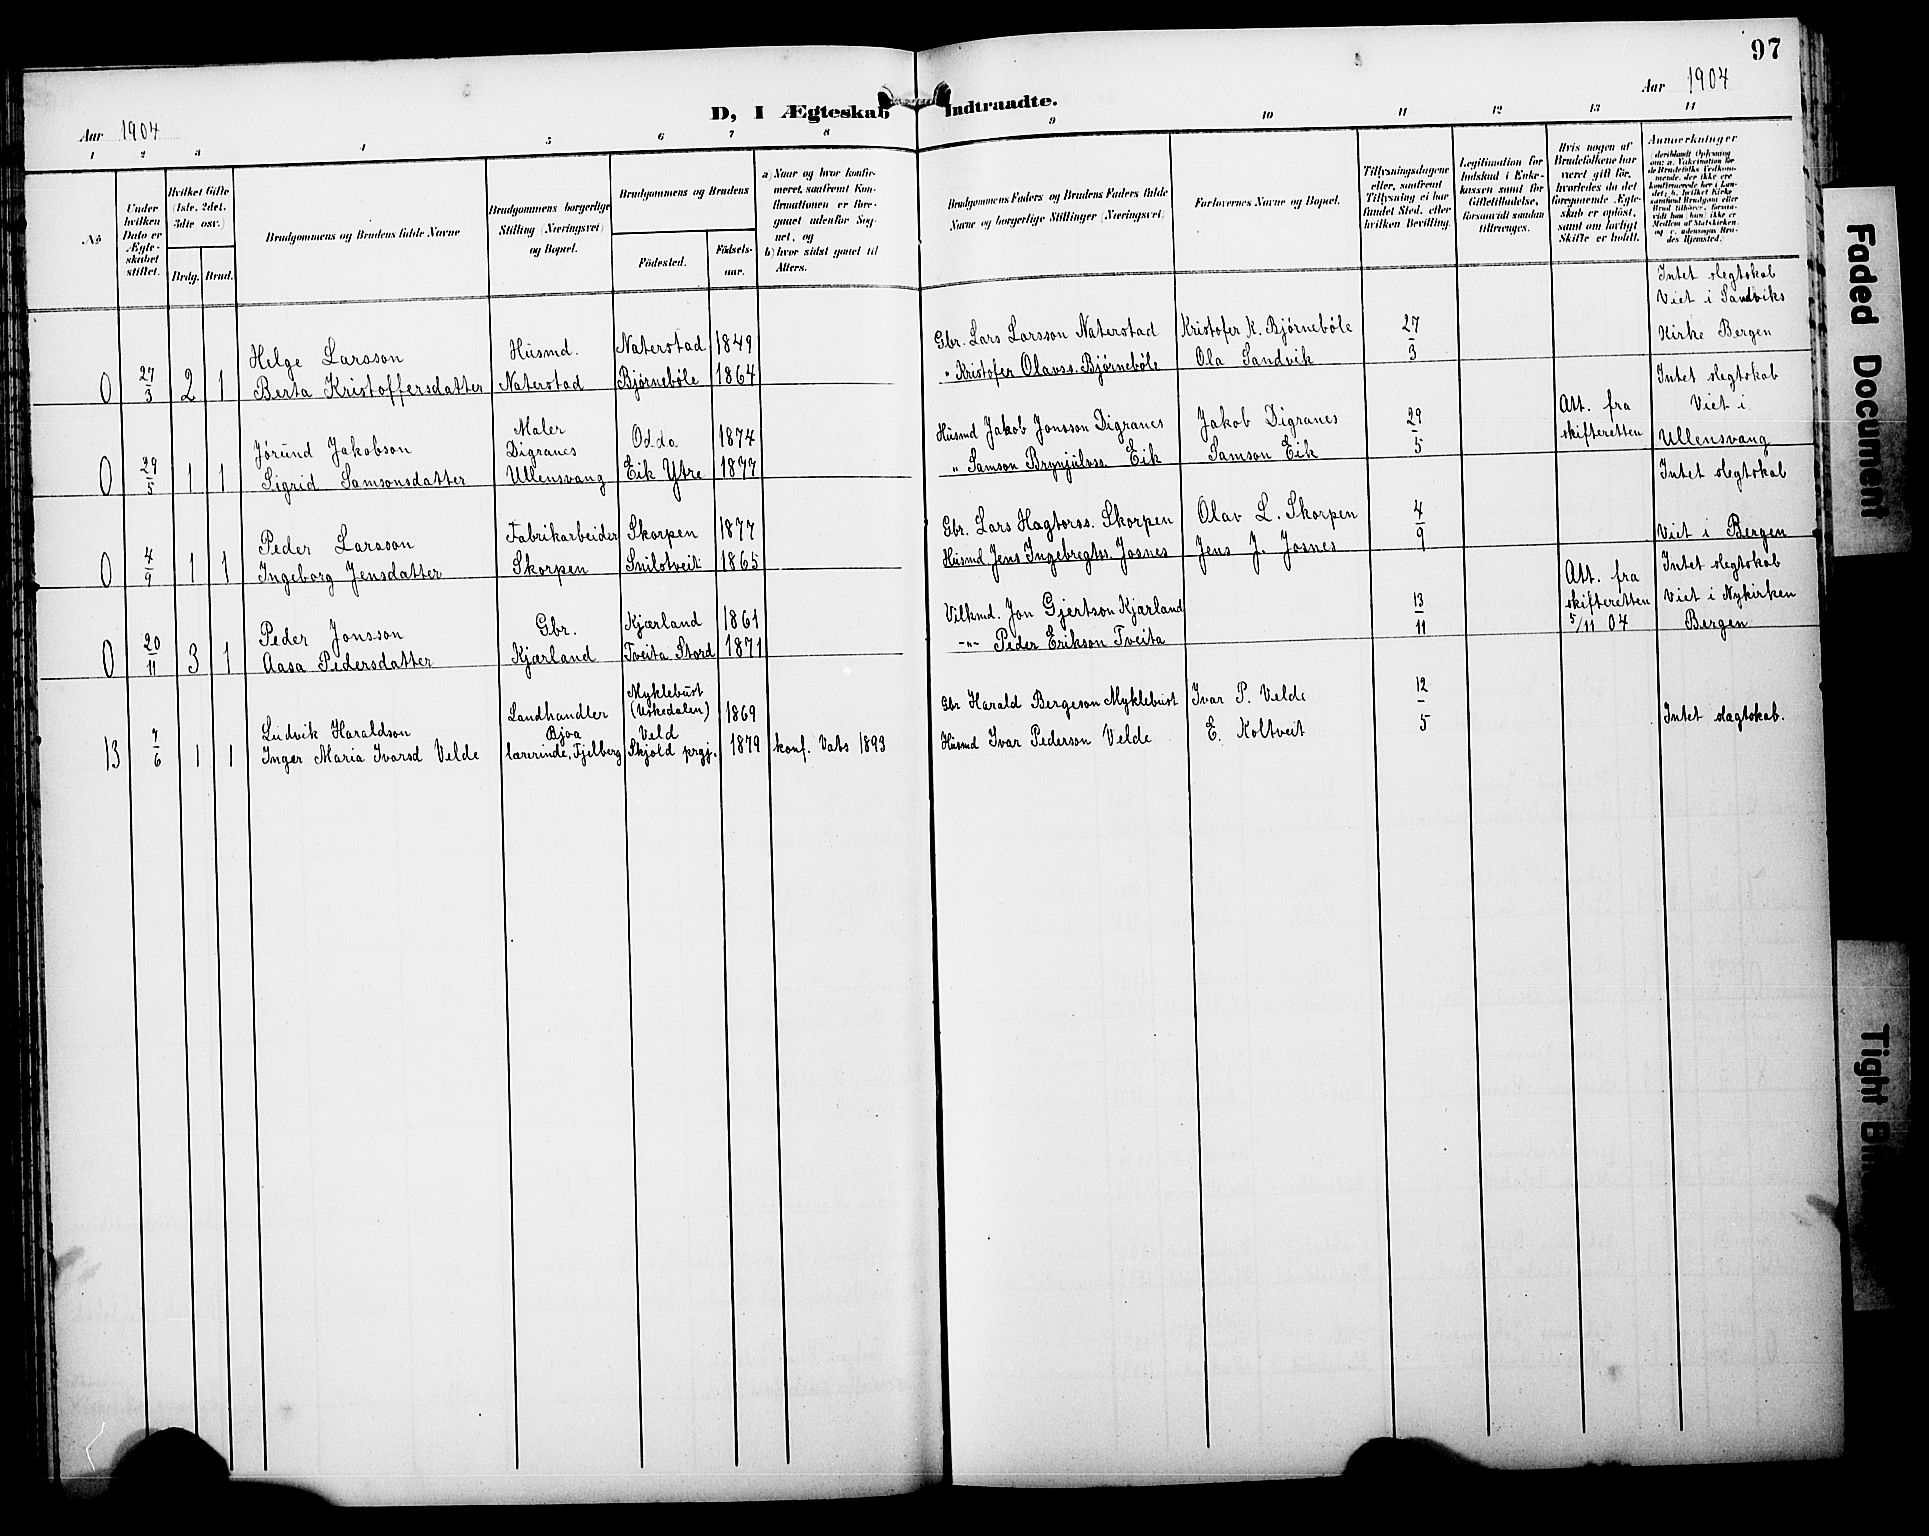 97
Aar 1904
D, I Ægteskab Indtraadte.
Aar 1904
1 2 3 4 5 6 7 8 9 10 11 12 13 14
No
Under hvilken Dato er Ægteskabet stiftet.
Hvilket Gifte (1ste, 2det, 3die osv.)
Brdg. Brud.
Brudgommens og Brudens fulde Navne
Brudgommens borgerlige Stilling (Næringsvei) og Bopæl.
Brudgommens og Brudens
Födested.
Födselsaar.
a) Naar og hvor konfirmeret, saafremt Konfirmationen er foregaaet udenfor Sognet, og
b) hvor sidst gaaet til Alters.
Brudgommens Faders og Brudens Faders fulde Navne og borgerlige Stillinger (Næringsvei)
Forlovernes Navne og Bopæl.
Tillysningsdagene eller, saafremt Tillysning ei har fundet Sted, efter hvilken Bevilling.
Legitimation for Indskud i Enkekassen samt for Giftetilladelse, forsaavidt saadan tiltrænges.
Hvis nogen af Brudefolkene har været gift för, hvorledes da det foregaaende Ægteskab er oplöst, samt om lovligt Skifte er holdt.
Anmærkninger
Intet slegtskab
Viet i Sandviks
Kirke Bergen
0 27/3 2 1 Helge Larsson Husmd. Naterstad 1849 Gbr. Lars Larsson Naterstad Kristofer K. Bjørnebøle 27/3
Berta Kristoffersdatter Naterstad Bjørnebøle 1864 " Kristofer Olavss. Bjørnebøle Ola Sandvik
Intet slegtskab
Viet i
Ullensvang
Att. fra
skifteretten
0 29/5 1 1 Jørund Jakobson Maler Digranes Odda 1874 Husmd Jakob Jonsson Digranes Jakob Digranes 29/5
Sigrid Samsonsdatter Ullensvang Eik Ytre 1877 " Samson Brynjulvss. Eik Samson Eik
Intet slegtskab
Viet i Bergen
0 4/9 1 1 Peder Larsson Fabrikarbeider Skorpen 1877 Gbr. Lars Hagtorss. Skorpen Olav L. Skorpen 4/9
Ingeborg Jensdatter Skorpen Snilstveit 1865 Husmd Jens Ingebregtss. Josnes Jens J. Josnes
Att. fra
skifteretten
5/11 04
Intet slegtskab
viet i Nykirken
Bergen
0 20/11 3 1 Peder Jonsson Gbr. Kjærland 1861 Vilkmd. Jon Gjertson Kjærland 13/11
Aasa Pedersdatter Kjærland Tveita Stord 1871 -"- Peder Erikson Tveita
13 7/6 1 1 Ludvik Haraldson Landhandler Bjoa Myklebust (Uskedalen) 1869 Gbr Harald Bergeson Myklebust Ivar P. Velde 12/5
Inger Maria Ivarsd Velde lærerinde, Fjelberg Veld Skjold prgj. 1879 konf. Vats 1893 Husmd Ivar Pederson Velde E. Koltveit
Intet slagtskab.
Faded Document
Tight